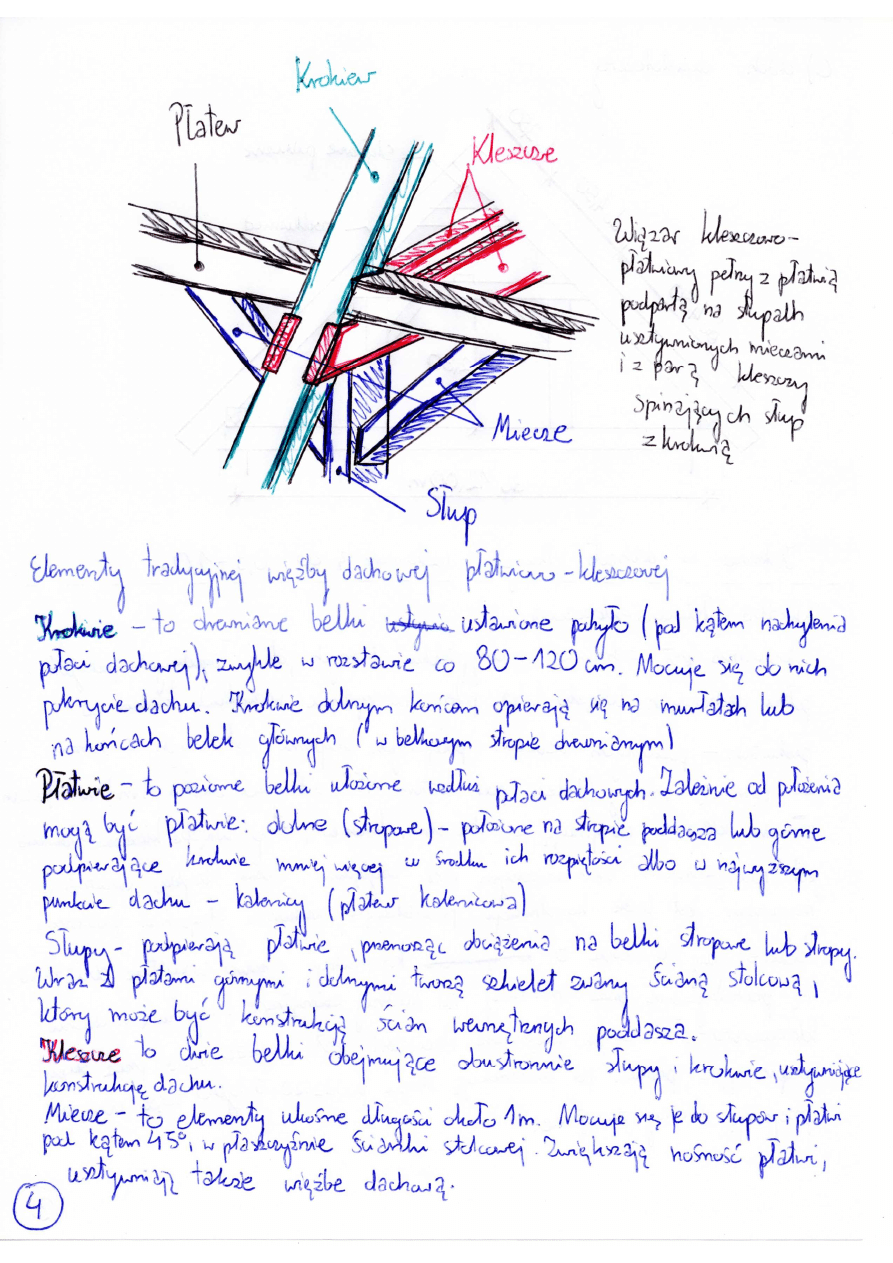 Krokiew
Płatew
Kleszcze
Wiązar kleszczowo-
płatwiowy pełny z płatwią
podpartą na słupach
usztywnionych mieczami
i z parą kleszczy
spinających słup
z krokwią
Miecze
Słup
Elementy tradycyjnej więźby dachowej płatwiowo-kleszczowej
Krokwie – to drewniane belki ustawione pochyło (pod kątem nachylenia
połaci dachowej), zwykle w rozstawie co 80-120 cm. Mocuje się do nich
pokrycie dachu. Krokwie dolnym końcem opierają się na murłatach lub
na końcach belek głównych (w belkowym stropie drewnianym)
Płatwie – to poziome belki ułożone wzdłuż połaci dachowych. Zależnie od położenia
mogą być płatwie: dolne (stropowe) – położone na stropie poddasza lub górne
podpierające krokwie mniej więcej w środku ich rozpiętości albo w najwyższym
punkcie dachu – kalenicy (płatew kalenicowa)
Słupy – podpierają płatwie, przenosząc obciążenia na belki stropowe lub stropy.
Wraz z płatami górnymi i dolnymi tworzą szkielet zwany ścianą stolcową,
który może być konstrukcją ścian wewnętrznych poddasza.
Kleszcze to dwie belki obejmujące obustronnie słupy i krokwie, usztywniające
konstrukcję dachu.
Miecze – to elementy ukośne długości około 1m. Mocuje się je do słupów i płatwi
pod kątem 45°, w płaszczyźnie ścianki stolcowej. Zwiększają nośność płatwi,
usztywniają także więźbe dachową.
4